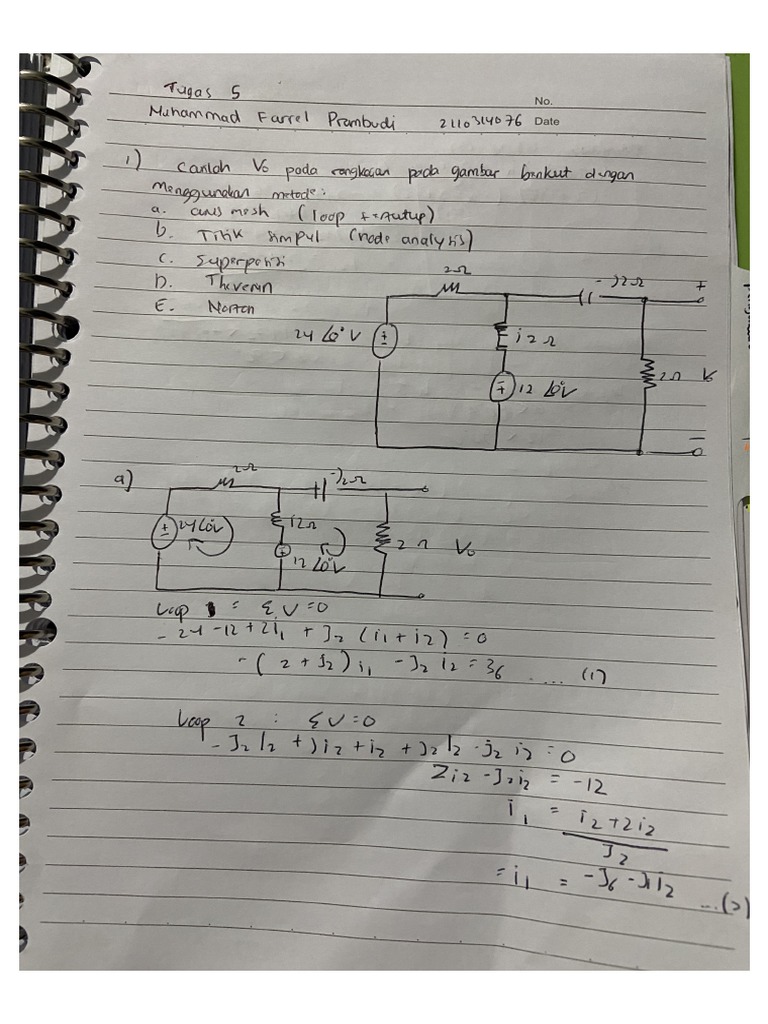 Tugas 5
No.
Muhammad Farrel Prambudi 2110314076 Date
1) Carilah Vo pada rangkaian pada gambar berikut dengan
Menggunakan metode:
a. arus mesh (loop tertutup)
b. Titik simpul (node analysis)
C. Superposisi
D. Thevenin
E. Norton
2Ω
-J2Ω
+
24∠0°V
±
j2Ω
∓
12∠0°V
2Ω Vo
-
a)
2Ω
-J2Ω
±
24∠0°V
j2Ω
12∠0°V
2Ω Vo
Loop 1 = ΣV=0
- 24 -12 + 2i₁ + J2 (i₁ + i2) = 0
- (2 + J2) i₁ - J2 i2 = 36 .... (1)
Loop 2 : ΣV=0
- J2 I2 + J i2 + i2 + J2 I2 - j2 i2 = 0
2i2 - J2i2 = -12
i₁ = i2 + 2i2
J2
= i₁ = -J6 - J1 i2 ...(2)